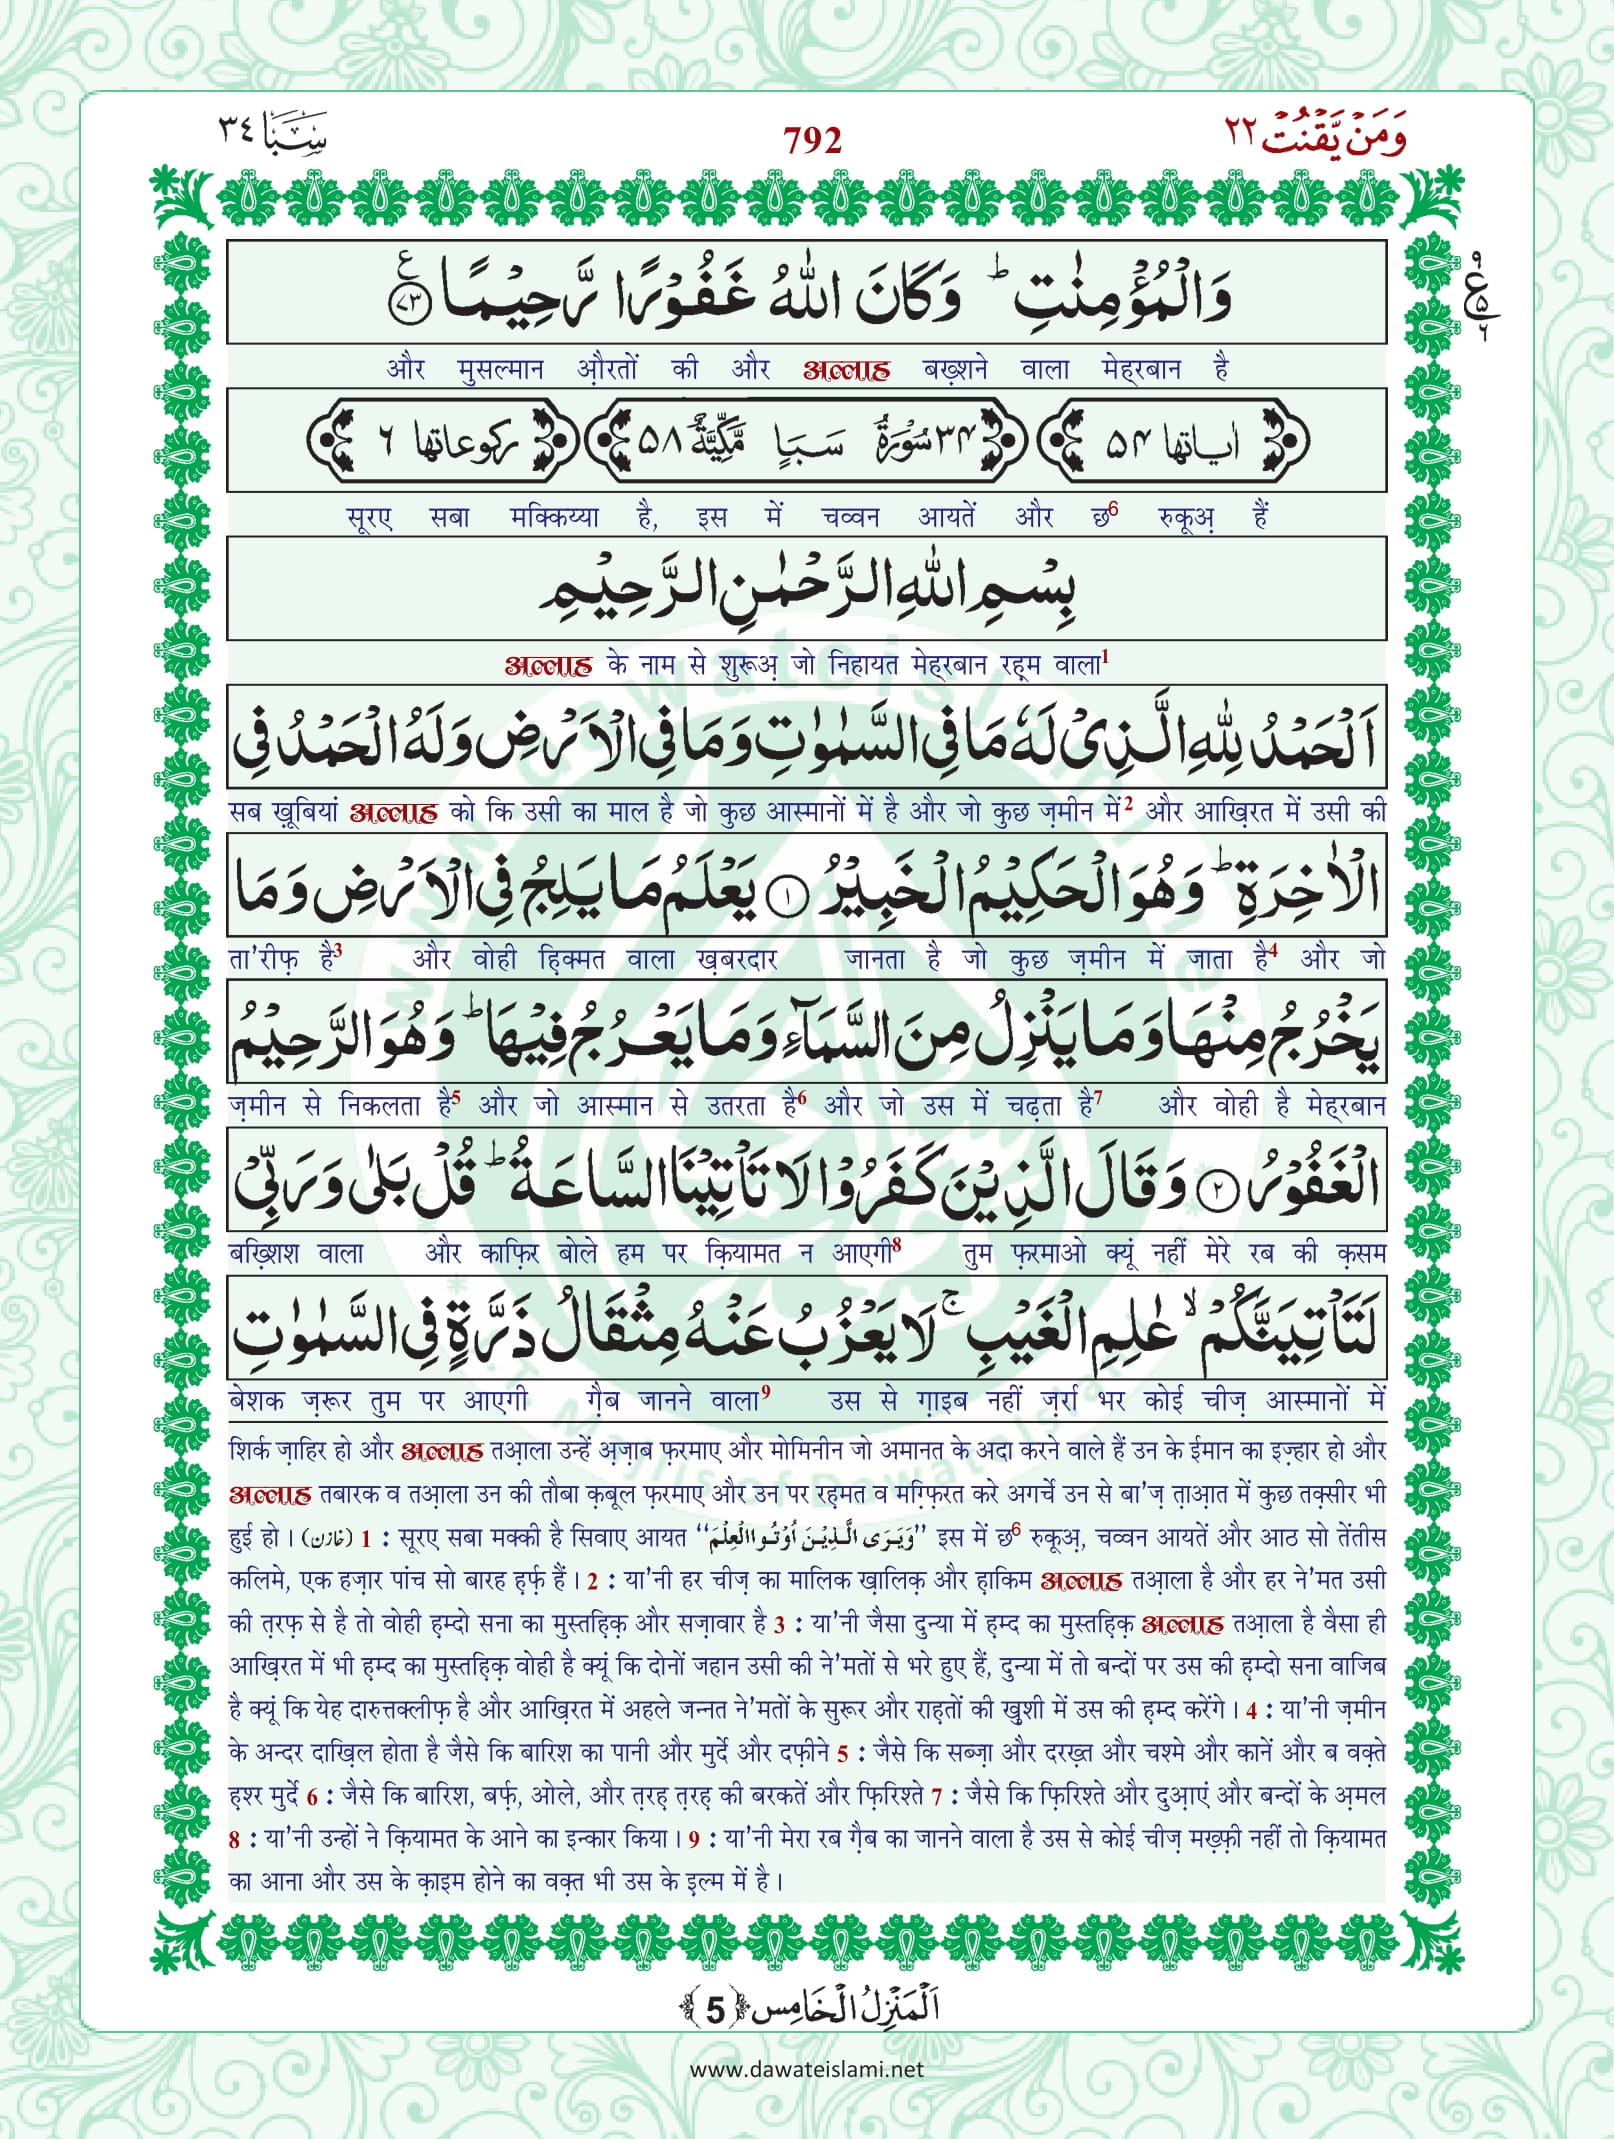 وَمَنۡ يَّقۡنُتۡ ٢٢
792
سَبَا ٣٤
وَالۡمُؤۡمِنٰتِ ؕ وَكَانَ اللّٰهُ غَفُوۡرًا رَّحِيۡمًا ﴿٧٣﴾ ع
और मुसल्मान औ़रतों की और अल्लाह बख़्शने वाला मेहरबान है
اٰیاتها ۵۴ ۳۴ سُوۡرَةُ سَبَاٍ مَّكِّيَّةٌ ۵۸ رکوعاتها ۶
सूरए सबा मक्किय्या है, इस में चव्वन आयतें और छ6 रुकूअ़ हैं
بِسۡمِ اللّٰهِ الرَّحۡمٰنِ الرَّحِيۡمِ
अल्लाह के नाम से शुरूअ़ जो निहायत मेहरबान रह़म वाला1
اَلۡحَمۡدُ لِلّٰهِ الَّذِىۡ لَهٗ مَا فِى السَّمٰوٰتِ وَمَا فِى الۡاَرۡضِ وَلَهُ الۡحَمۡدُ فِى
सब ख़ूबियां अल्लाह को कि उसी का माल है जो कुछ आस्मानों में है और जो कुछ ज़मीन में2 और आख़िरत में उसी की
الۡاٰخِرَةِ ؕ وَهُوَ الۡحَكِيۡمُ الۡخَبِيۡرُ ﴿١﴾ يَعۡلَمُ مَا يَلِجُ فِى الۡاَرۡضِ وَمَا
ता'रीफ़ है3 और वोही हि़क्मत वाला ख़बरदार जानता है जो कुछ ज़मीन में जाता है4 और जो
يَخۡرُجُ مِنۡهَا وَمَا يَنۡزِلُ مِنَ السَّمَآءِ وَمَا يَعۡرُجُ فِيۡهَا ؕ وَهُوَ الرَّحِيۡمُ
ज़मीन से निकलता है5 और जो आस्मान से उतरता है6 और जो उस में चढ़ता है7 और वोही है मेहरबान
الۡغَفُوۡرُ ﴿٢﴾ وَقَالَ الَّذِيۡنَ كَفَرُوۡا لَا تَاۡتِيۡنَا السَّاعَةُ ؕ قُلۡ بَلٰى وَرَبِّىۡ
बख़्शिश वाला और काफ़िर बोले हम पर क़ियामत न आएगी8 तुम फ़रमाओ क्यूं नहीं मेरे रब की क़सम
لَتَاۡتِيَنَّكُمۡ ۙ عٰلِمِ الۡغَيۡبِ ۚ لَا يَعۡزُبُ عَنۡهُ مِثۡقَالُ ذَرَّةٍ فِى السَّمٰوٰتِ
बेशक ज़रूर तुम पर आएगी ग़ैब जानने वाला9 उस से ग़ाइब नहीं ज़र्रा भर कोई चीज़ आस्मानों में
शिर्क ज़ाहिर हो और अल्लाह तआ़ला उन्हें अ़ज़ाब फ़रमाए और मोमिनीन जो अमानत के अदा करने वाले हैं उन के ईमान का इज़्हार हो और
अल्लाह तबारक व तआ़ला उन की तौबा क़बूल फ़रमाए और उन पर रह़मत व मग़्फ़िरत करे अगर्चे उन से बा'ज़ त़ाआ़त में कुछ तक़्सीर भी
हुई हो। (خازن) 1 : सूरए सबा मक्की है सिवाए आयत ‘‘وَيَرَى الَّذِيۡنَ اُوۡتُوا الۡعِلۡمَ’’ इस में छ6 रुकूअ़, चव्वन आयतें और आठ सो तेंतीस
कलिमे, एक हज़ार पांच सो बारह ह़र्फ़ हैं। 2 : या'नी हर चीज़ का मालिक ख़ालिक़ और ह़ाकिम अल्लाह तआ़ला है और हर ने'मत उसी
की त़रफ़ से है तो वोही ह़म्दो सना का मुस्तह़िक़ और सज़ावार है 3 : या'नी जैसा दुन्या में ह़म्द का मुस्तह़िक़ अल्लाह तआ़ला है वैसा ही
आख़िरत में भी ह़म्द का मुस्तह़िक़ वोही है क्यूं कि दोनों जहान उसी की ने'मतों से भरे हुए हैं, दुन्या में तो बन्दों पर उस की ह़म्दो सना वाजिब
है क्यूं कि येह दारुत्तक्लीफ़ है और आख़िरत में अहले जन्नत ने'मतों के सुरूर और राह़तों की खुशी में उस की ह़म्द करेंगे। 4 : या'नी ज़मीन
के अन्दर दाख़िल होता है जैसे कि बारिश का पानी और मुर्दे और दफ़ीने 5 : जैसे कि सब्ज़ा और दरख़्त और चश्मे और कानें और ब वक़्ते
ह़श्र मुर्दे 6 : जैसे कि बारिश, बर्फ़, ओले, और त़रह़ त़रह़ की बरकतें और फ़िरिश्ते 7 : जैसे कि फ़िरिश्ते और दुआ़एं और बन्दों के अ़मल
8 : या'नी उन्हों ने क़ियामत के आने का इन्कार किया। 9 : या'नी मेरा रब ग़ैब का जानने वाला है उस से कोई चीज़ मख़्फ़ी नहीं तो क़ियामत
का आना और उस के क़ाइम होने का वक़्त भी उस के इ़ल्म में है।
اَلۡمَنۡزِلُ الۡخَامِس ﴿5﴾
www.dawateislami.net